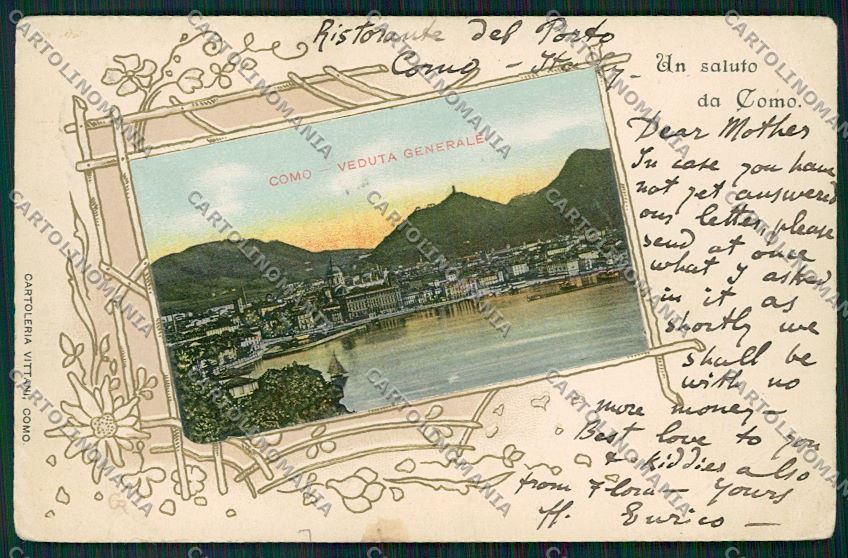 Ristorante del Porto
Como - Italy -
Un saluto
da Como.
COMO — VEDUTA GENERALE
Dear Mother
In case you have
not yet answered
our letter, please
send at once
what I asked
in it as
shortly we
shall be
with no
more money -
Best love to you
& kiddies also
from Flora - Yours
ff. Enrico -
CARTOLERIA VITTANI, COMO.
CARTOLINOMANIA